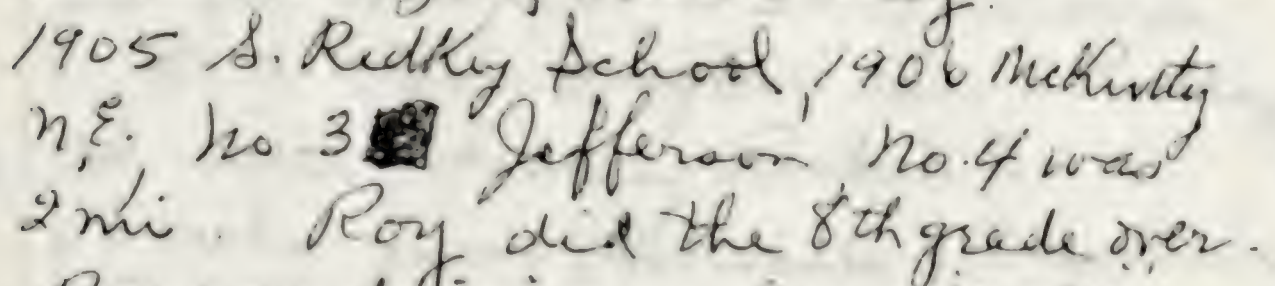 1905 S. Ridkey School, 1906 McKinty
N.E. No 3 Jefferson No. 4 was
2 mi. Roy did the 8th grade over.